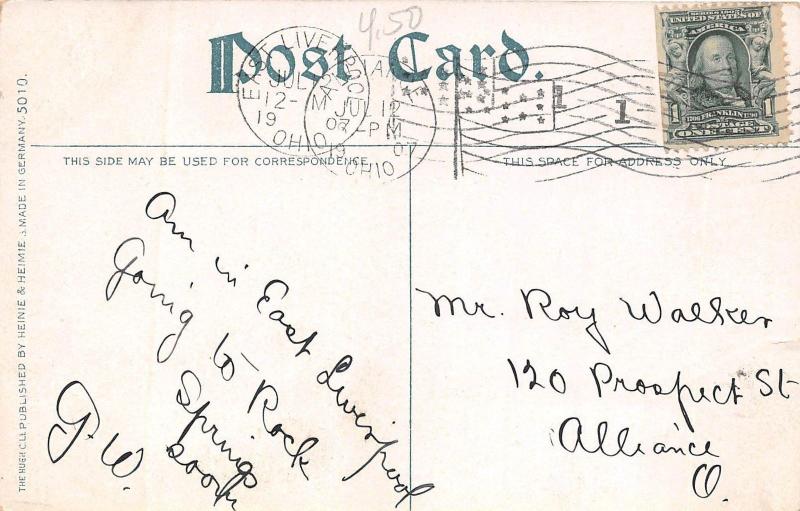 4.50
Post Card.
EAST LIVERPOOL
JUL 12
12-M
1907
OHIO
JUL 12
-PM
1907
OHIO
1
1
SERIES 1902
UNITED STATES OF
AMERICA
1706 FRANKLIN 1790
POSTAGE
1 ONE CENT 1
THIS SIDE MAY BE USED FOR CORRESPONDENCE
THIS SPACE FOR ADDRESS ONLY.
Am in East Liverpool
Going to Rock
Springs
soon
G. W.
Mr. Roy Walker
120 Prospect St
Alliance
O.
THE HUGH C. PUBLISHED BY HEINIE & HEIMIE MADE IN GERMANY. 5010.